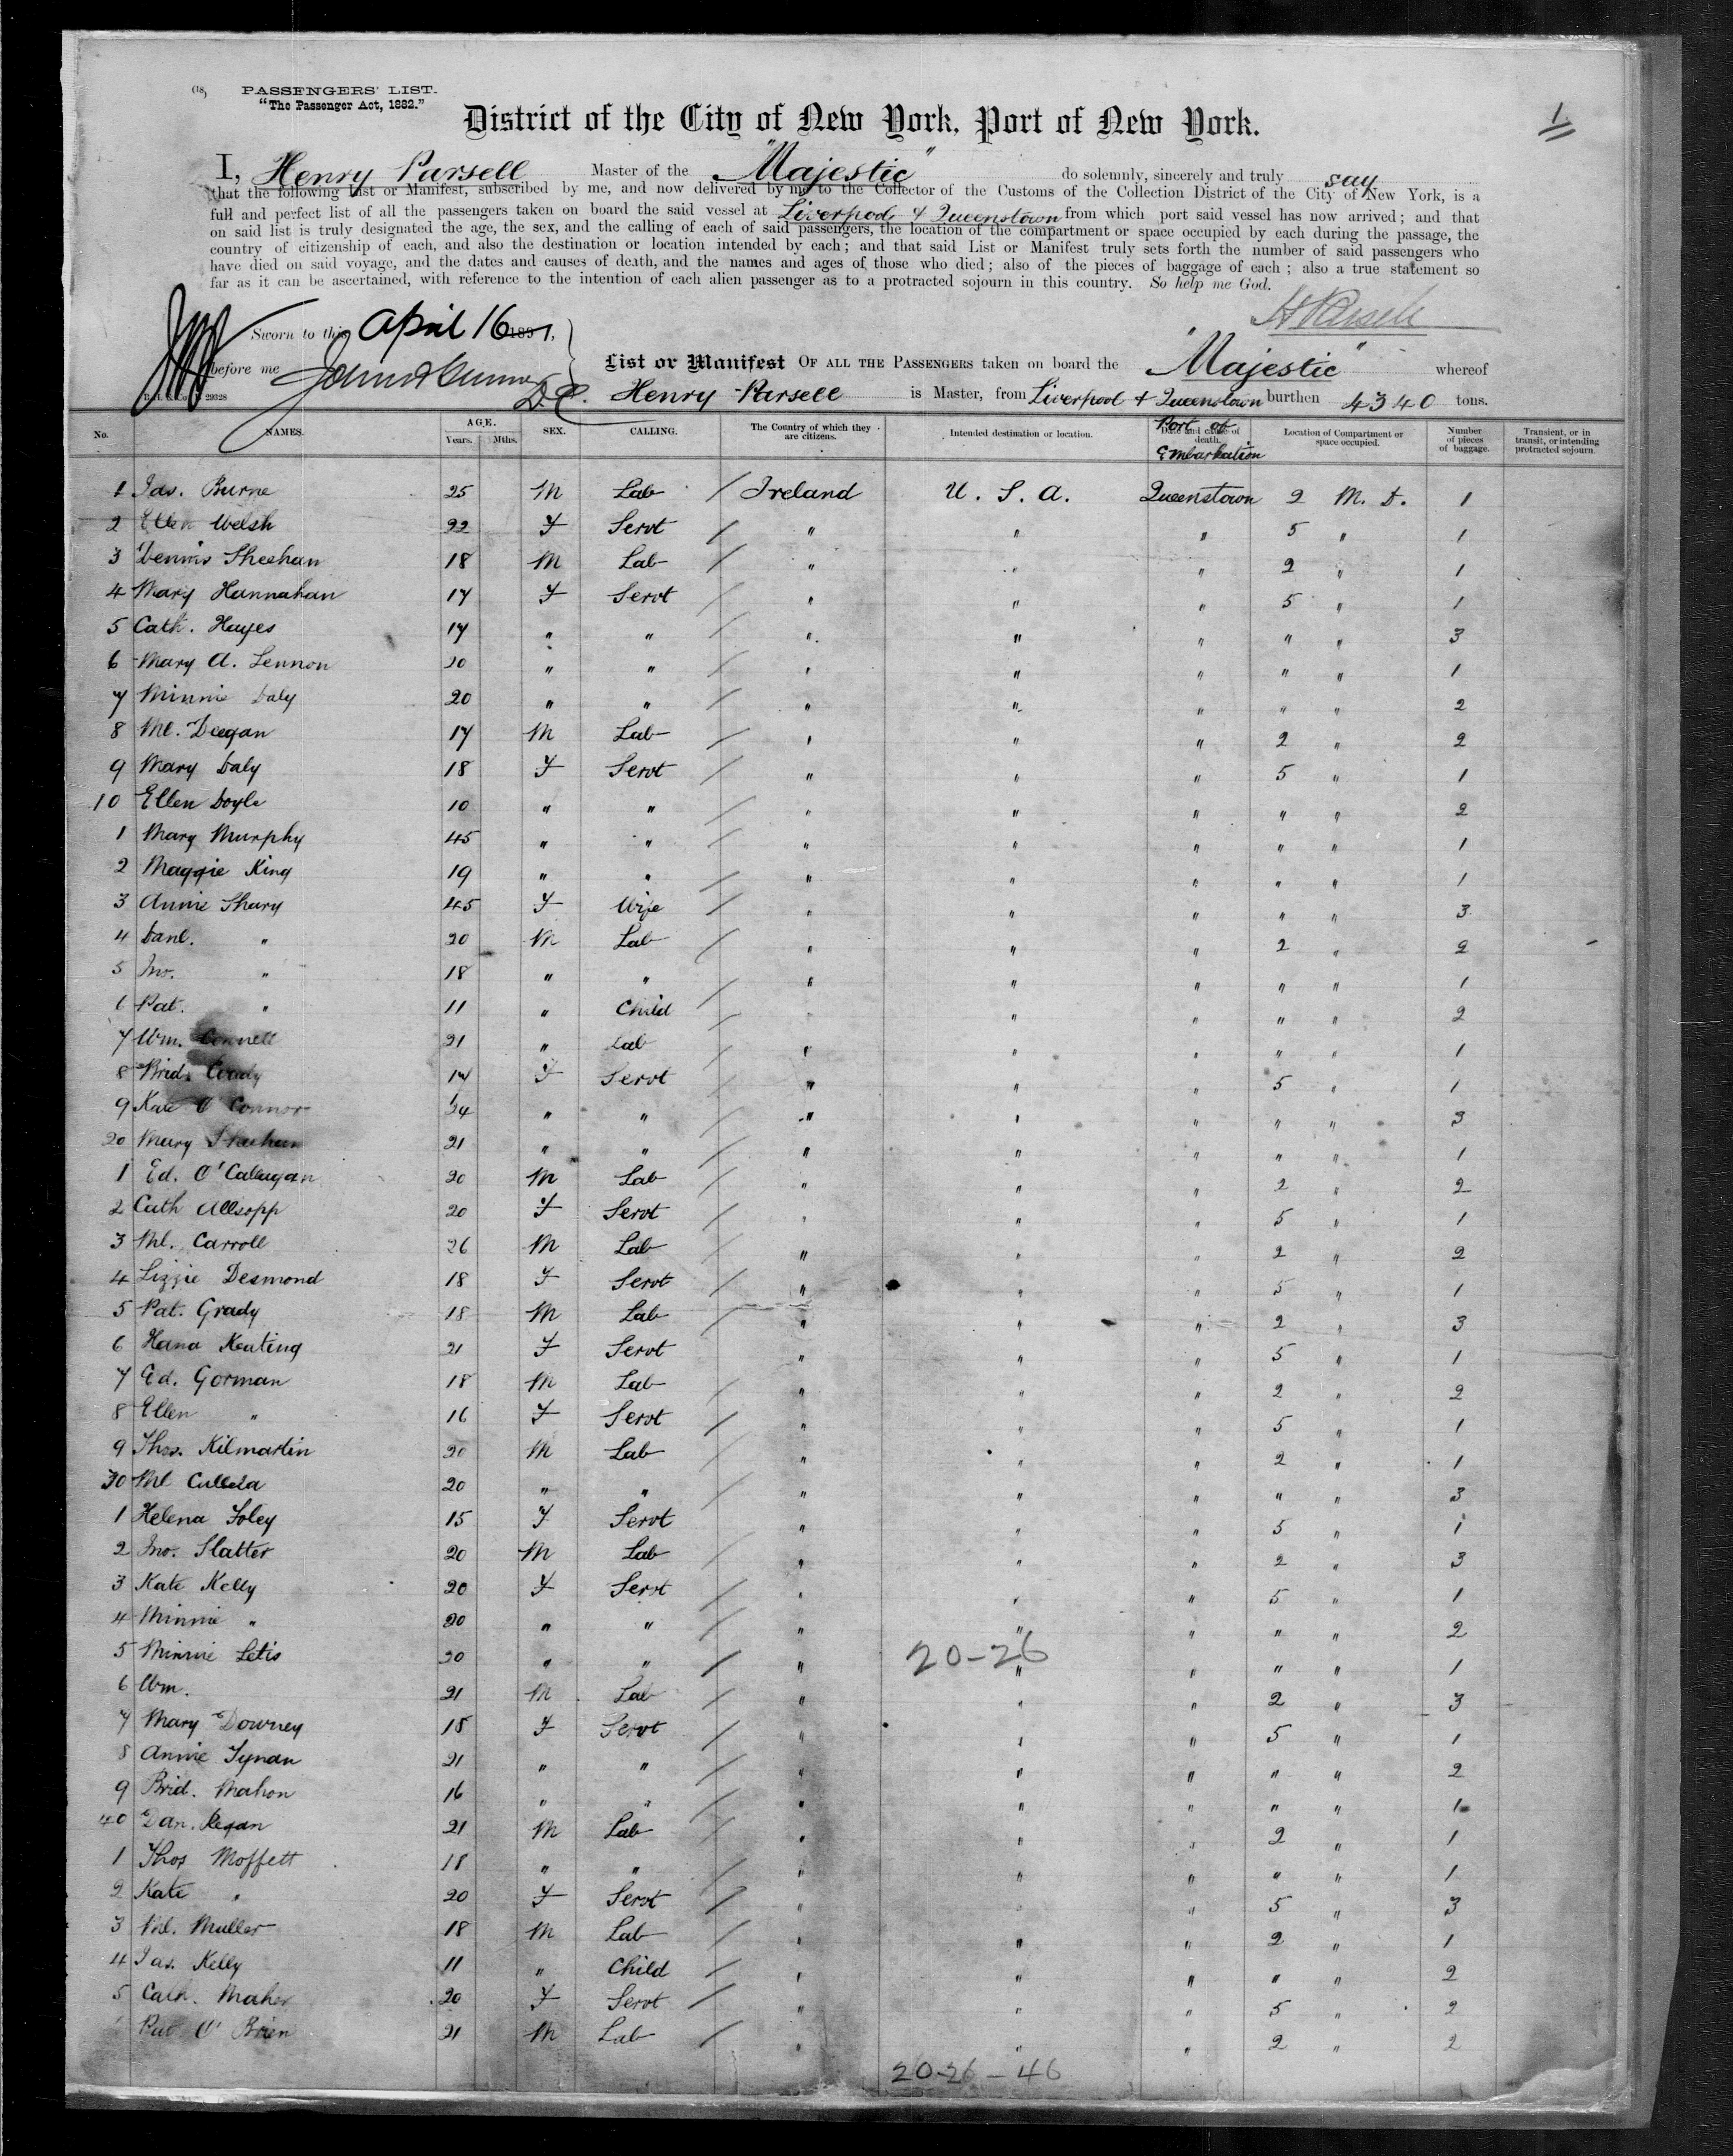 PASSENGERS' LIST.
"The Passenger Act, 1882."
District of the City of New York, Port of New York.
1
I, Henry Parsell Master of the "Majestic" do solemnly, sincerely and truly say
that the following List or Manifest, subscribed by me, and now delivered by me to the Collector of the Customs of the Collection District of the City of New York, is a
full and perfect list of all the passengers taken on board the said vessel at Liverpool & Queenstown from which port said vessel has now arrived; and that
on said list is truly designated the age, the sex, and the calling of each of said passengers, the location of the compartment or space occupied by each during the passage, the
country of citizenship of each, and also the destination or location intended by each; and that said List or Manifest truly sets forth the number of said passengers who
have died on said voyage, and the dates and causes of death, and the names and ages of those who died; also of the pieces of baggage of each; also a true statement so
far as it can be ascertained, with reference to the intention of each alien passenger as to a protracted sojourn in this country. So help me God.
H Parsell
Sworn to this April 16 1891,
before me
List or Manifest OF ALL THE PASSENGERS taken on board the "Majestic" whereof
Henry Parsell is Master, from Liverpool & Queenstown burthen 4340 tons.
No. NAMES. AGE. Years. Mths. SEX. CALLING. The Country of which they are citizens. Intended destination or location. Port of Embarkation Location of Compartment or space occupied. Number of pieces of baggage. Transient, or in transit, or intending protracted sojourn.
1 Jas. Burne 25 M Lab / Ireland U. S. A. Queenstown 2 M. D. 1
2 Ellen Welsh 22 F Servt / " " " 5 " 1
3 Dennis Sheehan 18 M Lab / " " " 2 " 1
4 Mary Hannahan 17 F Servt / " " " 5 " 1
5 Cath. Hayes 17 " " / " " " " " 3
6 Mary A. Lennon 20 " " / " " " " " 1
7 Minnie Daly 20 " " / " " " " " 2
8 Ml. Deegan 17 M Lab / " " " 2 " 2
9 Mary Daly 18 F Servt / " " " 5 " 1
10 Ellen Doyle 10 " " / " " " " " 2
1 Mary Murphy 45 " " / " " " " " 1
2 Maggie King 19 " " / " " " " " 1
3 Annie Shary 45 F Wife / " " " " " 3
4 Danl. " 20 M Lab / " " " 2 " 2
5 Jno. " 18 " " / " " " " " 1
6 Pat. " 11 " Child / " " " " " 2
7 Wm. Connell 21 " Lab / " " " " " 1
8 Brid. 17 F Servt / " " " 5 " 1
9 Kate O'Connor 24 " " / " " " " " 3
20 Mary Sheehan 21 " " / " " " " " 1
1 Ed. O'Callagan 20 M Lab / " " " 2 " 2
2 Cath Allsopp 20 F Servt / " " " 5 " 1
3 Ml. Carroll 26 M Lab / " " " 2 " 2
4 Lizzie Desmond 18 F Servt / " " " 5 " 1
5 Pat. Grady 18 M Lab / " " " 2 " 3
6 Hana Keating 21 F Servt / " " " 5 " 1
7 Ed. Gorman 18 M Lab / " " " 2 " 2
8 Ellen " 16 F Servt / " " " 5 " 1
9 Thos. Kilmartin 20 M Lab / " " " 2 " 1
30 Ml 20 " " / " " " " " 3
1 Helena Foley 15 F Servt / " " " 5 " 1
2 Jno. Slatter 20 M Lab / " " " 2 " 3
3 Kate Kelly 20 F Servt / " " " 5 " 1
4 Minnie " 20 " " / " " " " " 2
5 Minnie Letis 20 " " / " 20-26 " " " " 1
6 Wm. 21 M Lab / " " " 2 " 3
7 Mary Downey 18 F Servt / " " " 5 " 1
8 Annie Tynan 21 " " / " " " " " 2
9 Brid. Mahon 16 " " / " " " " " 1
40 Dan. Regan 21 M Lab / " " " 2 " 1
1 Thos Moffett 18 " " / " " " " " 1
2 Kate " 20 F Servt / " " " 5 " 3
3 Ml. Muller 18 M Lab / " " " 2 " 1
4 Jas. Kelly 11 " Child / " " " " " 2
5 Cath. Maher 20 F Servt / " " " 5 " 2
Pat O'Brien 21 M Lab / " " " 2 " 2
20-26-46